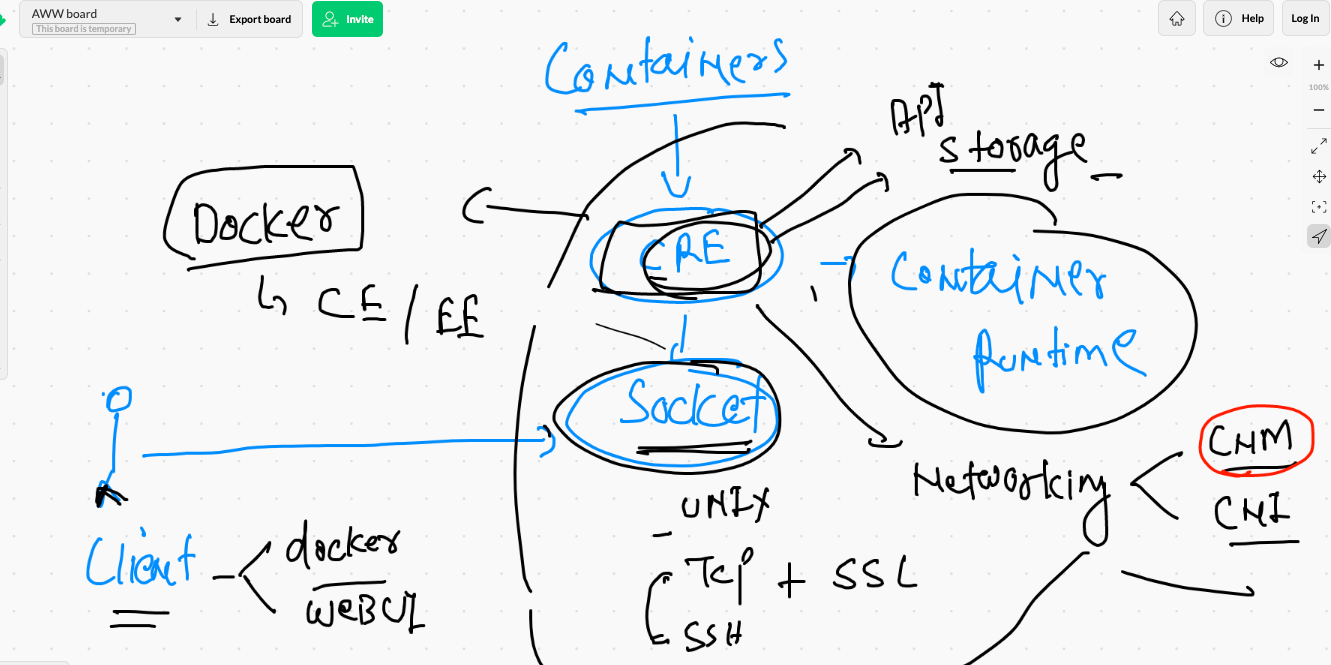 AWW board
This board is temporary
Export board
Invite
Help
Log In
100%
Containers
API
storage
Docker
CRE
CE / EE
Container
Runtime
Socket
CNM
Networking
CNI
UNIX
Client
docker
WEBUI
TCP + SSL
SSH